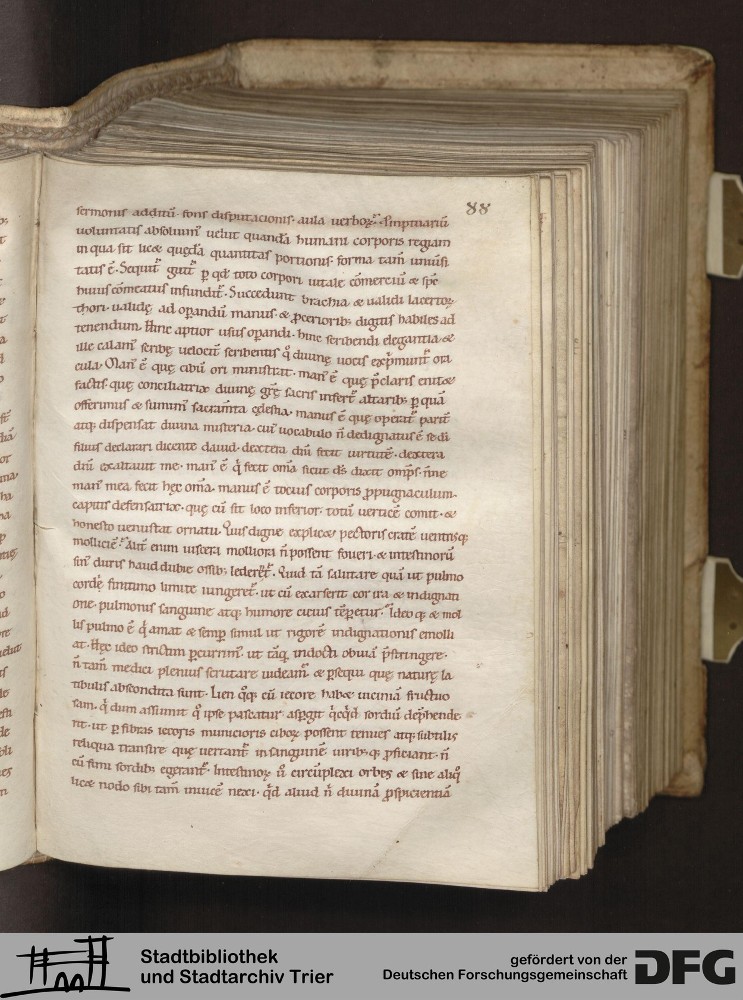 88
sermonis additū· fons disputacionis· aula uerboꝝ· Ꝓmptuariū
uoluntatis absoluim᷒ uelut quandā humani corporis regiam
in qua sit licet quędā quantitas portionis· forma tam̄ uniūsi
tatis ē· Sequit᷑ gutt᷑ ꝑ qd̄ toto corpori uitale cōmerciū & spē
huius cōmeatus infundit᷑· Succedunt brachia & ualidi lacertoꝝ
thori· ualidę ad oꝑandū manus & ꝓcerioribꝫ digitis habiles ad
tenendum· Hinc aptior usus oꝑandi· hinc scribendi elegantia &
ille calam᷒ scribę uelocit᷑ scribentis q̊ diuinę uocis exp̄munt᷑ ora
cula· Man᷒ ē quę cibū ori ministrat· man᷒ ē quę p̄claris enit&
factis· quę conciliatrix diuinę gr̄ę sacris infert᷑ altaribꝫ ꝑ quā
offerimus & sumim᷒ sacram̄ta cęlestia· manus ē quę operat᷑ parit᷑
atqꝫ dispensat diuina misteria· cui᷒ uocabulo n̄ dedignatus ē se dī
filius declarari dicente dauid· dextera dn̄i fecit uirtutē· dextera
dn̄i exaltauit me· man᷒ ē q̨ fecit om̄a sicut ds̄ dixit om̄ps· n̄ne
man᷒ mea fecit hęc om̄a· manus ē tocius corporis ꝓpugnaculum·
capitis defensatrix· quę cū sit loco inferior· totū uerticē comit· &
honesto uenustat ornatu· Quis digne explic& pectoris cratē uentrisqꝫ
molliciē· Aut᷑ enim uiscera molliora n̄ possent foueri· & intestinorū
sin᷒ duris haud dubie ossibꝫ lederēt᷑· Quid tā salutare quā ut pulmo
cordę finitimo limite iungeret᷑· ut cū exarserit cor ira & indignati
one· pulmonis sanguine atqꝫ humore cicius tēperetur· Ideoqꝫ & mol
lis pulmo ē q̨a mad& semꝑ simul ut rigorē indignationis emolli
at· Hęc ideo strictim ꝑcurrim᷒· ut tāqꝫ indocti obuia p̄stringere·
n̄ tam̄ medici plenius scrutare uideam᷒· & ꝑsequi quę naturę la
tibulis abscondita sunt· Lien q̊qꝫ cū iecore hab& uiciniā fructuo
sam· q̨ dum assumit q̊ ipse pascatur· asp̄git q̨cq̨d sordiū dep̄hende
rit· ut ꝑ fibras iecoris municioris ciboꝝ possent tenues atqꝫ subtilis
reliqua transire quę uertant᷑ in sanguinē uiribꝫqꝫ ꝓficiant· n̄
cū fimi sordibꝫ egerant᷑· Intestinoꝝ ů circūplexi orbes & sine aliq̊
lic& nodo sibi tam̄ inuicē nexi· q̨d aliud n̄ diuinā ꝓspicientiā
Stadtbibliothek
und Stadtarchiv Trier
gefördert von der
Deutschen Forschungsgemeinschaft
DFG